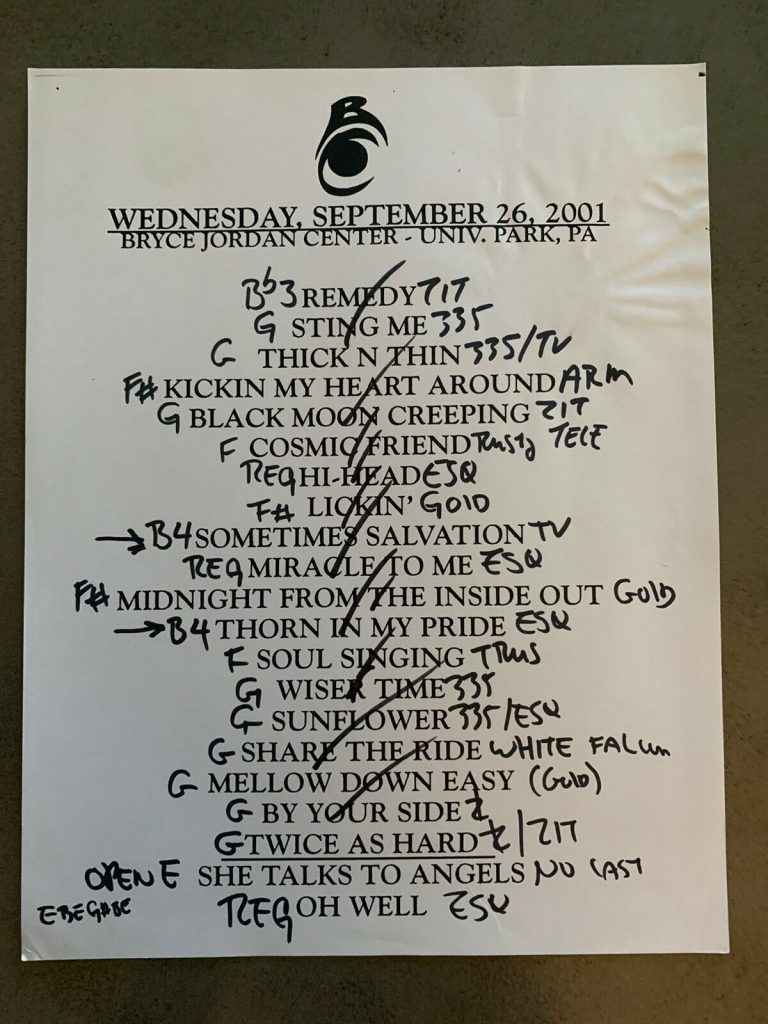 B
WEDNESDAY, SEPTEMBER 26, 2001
BRYCE JORDAN CENTER - UNIV. PARK, PA
Bb3 REMEDY ZIT
G STING ME 335
G THICK N THIN 335/TV
F# KICKIN MY HEART AROUND ARM
G BLACK MOON CREEPING ZIT
F COSMIC FRIEND TRUSTY TELE
REG HI-HEAD ESQ
F# LICKIN' GOLD
→ B4 SOMETIMES SALVATION TV
REG MIRACLE TO ME ESQ
F# MIDNIGHT FROM THE INSIDE OUT GOLD
→ B4 THORN IN MY PRIDE ESQ
F SOUL SINGING TRUS
G WISER TIME 335
G SUNFLOWER 335/ESQ
G SHARE THE RIDE WHITE FALCON
G MELLOW DOWN EASY (GOLD)
G BY YOUR SIDE Z
G TWICE AS HARD Z/ZIT
OPEN E SHE TALKS TO ANGELS NO CAST
EBEG#BE
REG OH WELL ESQ